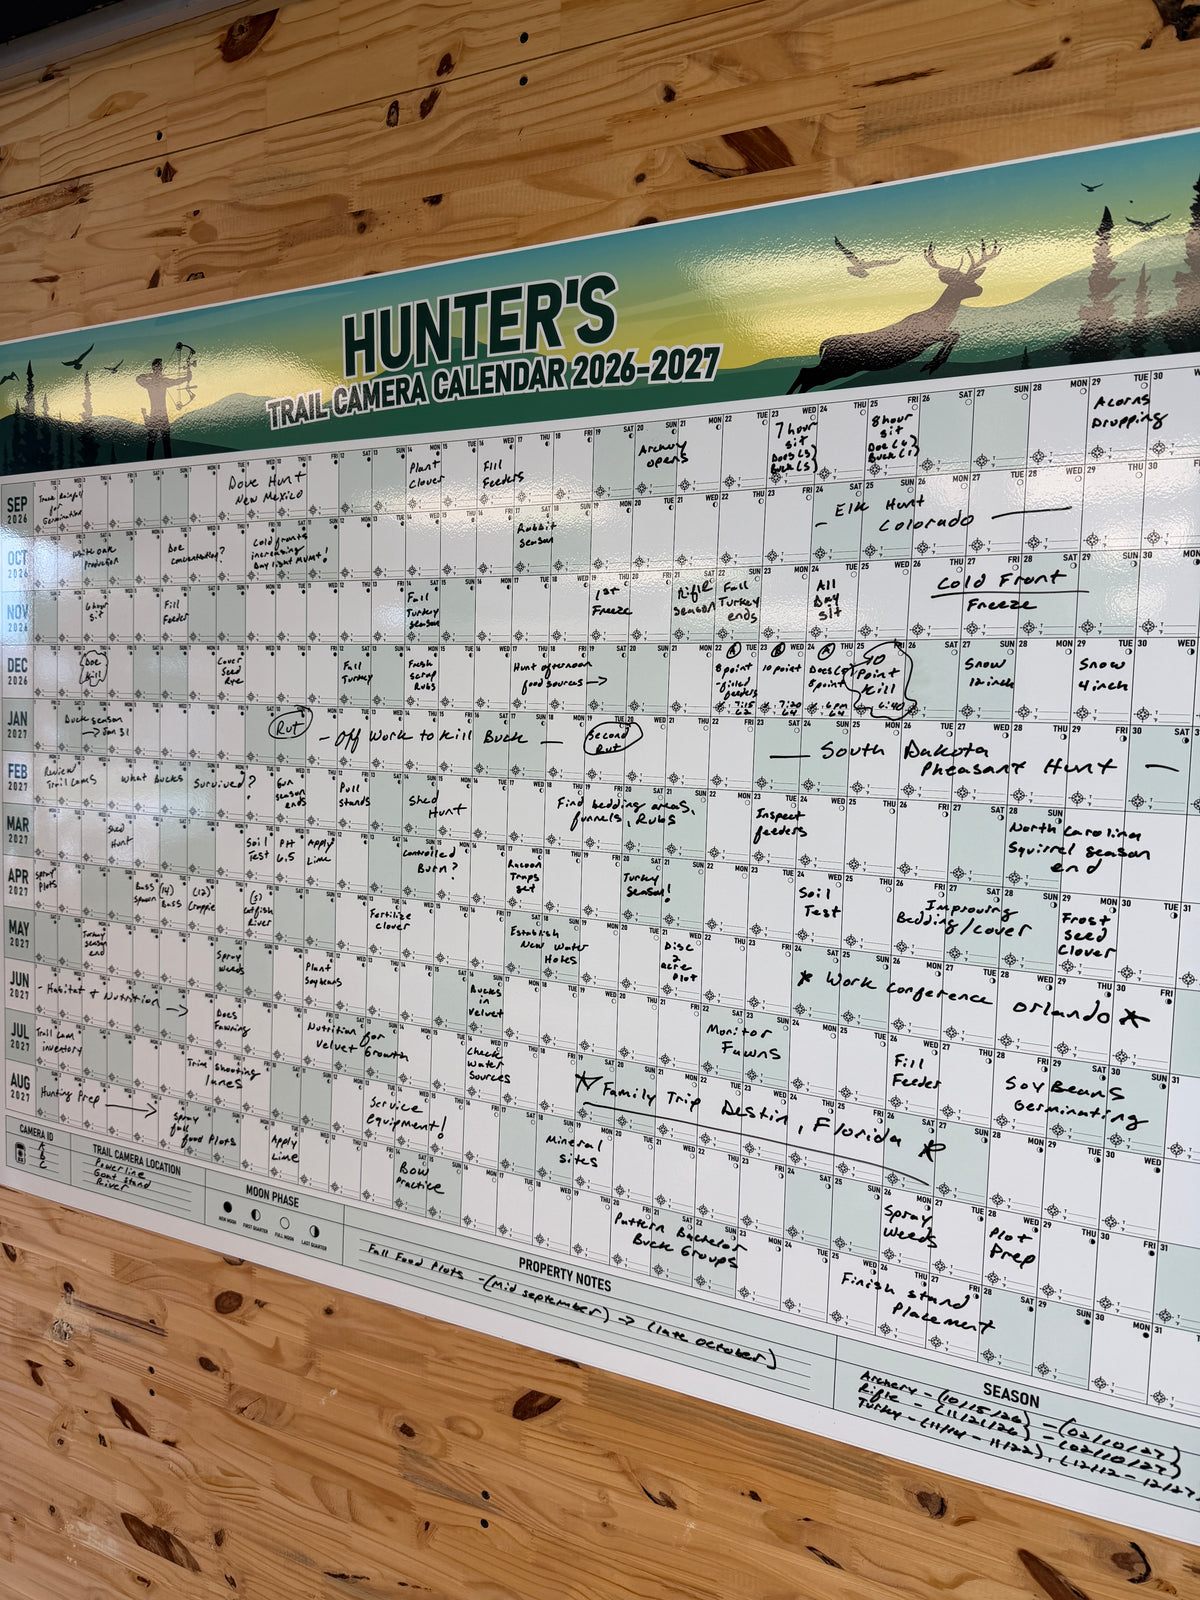 HUNTER'S
TRAIL CAMERA CALENDAR 2026-2027
SEP
2026
Track Rainfall
for
Germination
Dove Hunt
New Mexico
Plant
Clover
Fill
Feeders
Archery
opens
7 hour
sit
Does (3)
Buck (5)
8 hour
sit
Doe (4)
Buck (1)
Acorns
Dropping
OCT
2026
White oak
Production
Doe
concentration?
Cold fronts
increasing
Daylight Mvmt!
Rabbit
Season
- Elk Hunt
Colorado
NOV
2026
6 hour
sit
Fill
Feeder
Fall
Turkey
Season
1st
Freeze
Rifle
Season
Fall
Turkey
ends
All
Day
sit
Cold Front
Freeze
DEC
2026
Doe
Kill
Cover
Seed
Rye
Fall
Turkey
Fresh
Scrap
Rubs
Hunt afternoon
food sources →
A
8 point
-filled
feeders
7:15
62
A
10 point
7:20
64
A
Does
8 point
6 pm
64
10
Point
Kill
6:40
Snow
12 inch
Snow
4 inch
JAN
2027
Buck season
→ Jan 31
Rut
- Off Work to Kill Buck -
Second
Rut
- South Dakota
Pheasant Hunt -
FEB
2027
Review
Trail Cams
What Bucks Survived?
Gun
season
ends
Pull
Stands
Shed
Hunt
Find bedding areas,
funnels, Rubs
Inspect
feeders
North Carolina
Squirrel season
end
MAR
2027
Shed
Hunt
Soil
Test
PH
6.5
Apply
Lime
Controlled
Burn?
Racoon
Traps
set
Turkey
Season!
Soil
Test
Improving
Bedding/cover
Frost
Seed
Clover
APR
2027
Spray
Plots
Bass
Spawn
(14)
Bass
(12)
Crappie
(3)
Catfish
River
Fertilize
clover
Establish
New Water
Holes
Disc
2
acre
Plot
* Work conference Orlando *
MAY
2027
Turkey
season
end
Spray
Weeds
Plant
Soybeans
Bucks
in
velvet
Monitor
Fawns
Fill
Feeder
Soy Beans
Germinating
JUN
2027
- Habitat + Nutrition →
Does
Fawning
Nutrition for
Velvet Growth
Check
Water
Sources
Family Trip Destin, Florida
JUL
2027
Trail cam
inventory
Trim shooting
lanes
Service
equipment!
Mineral
sites
Spray
Weeds
Plot
Prep
AUG
2027
Hunting Prep →
Spray
fall
food Plots
Apply
Lime
Bow
Practice
Pattern Bachelor
Buck Groups
Finish stand
Placement
CAMERA ID
A
B
C
TRAIL CAMERA LOCATION
Powerline
Goat stand
River
MOON PHASE
NEW MOON
FIRST QUARTER
FULL MOON
LAST QUARTER
PROPERTY NOTES
Fall Food Plots - (Mid september) → (late october)
SEASON
Archery - (10/15/26) - (02/10/27)
Rifle - (11/21/26) - (02/10/27)
Turkey - (11/14 - 11/22), (12/12 - 12/27